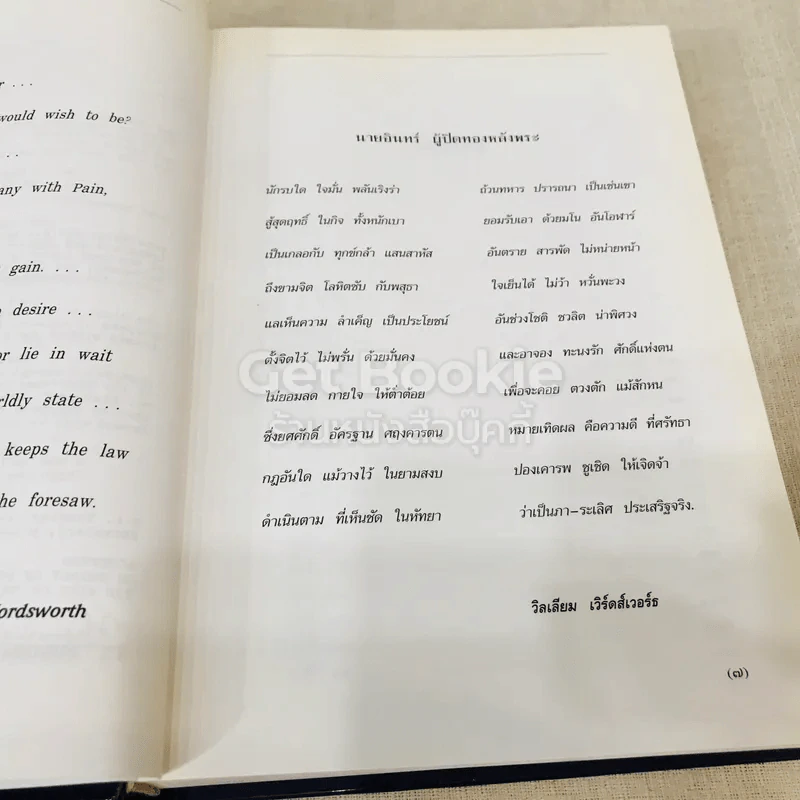 r ...
would wish to be?
...
any with Pain,
gain. ...
desire ...
or lie in wait
rldly state ...
keeps the law
he foresaw.
ordsworth
นายอินทร์ ผู้ปิดทองหลังพระ
นักรบใด ใจมั่น พลันเริงร่า ถ้วนทหาร ปรารถนา เป็นเช่นเขา
สู้สุดฤทธิ์ ในกิจ ทั้งหนักเบา ยอมรับเอา ด้วยมโน อันโอฬาร์
เป็นเกลอกับ ทุกข์กล้า แสนสาหัส อันตราย สารพัด ไม่หน่ายหน้า
ถึงยามจิต โลหิตซับ กับพสุธา ใจเย็นได้ ไม่ว้า หวั่นพะวง
แลเห็นความ ลำเค็ญ เป็นประโยชน์ อันช่วงโชติ ชวลิต น่าพิศวง
ตั้งจิตไว้ ไม่พรั่น ด้วยมั่นคง และอาจอง ทะนงรัก ศักดิ์แห่งตน
ไม่ยอมลด กายใจ ให้ต่ำต้อย เพื่อจะคอย ตวงตัก แม้สักหน
ซึ่งยศศักดิ์ อัครฐาน ศฤงคารตน หมายเทิดผล คือความดี ที่ศรัทธา
กฎอันใด แม้วางไว้ ในยามสงบ ปองเคารพ ชูเชิด ให้เจิดจ้า
ดำเนินตาม ที่เห็นชัด ในหัทยา ว่าเป็นภา-ระเลิศ ประเสริฐจริง.
วิลเลียม เวิร์ดส์เวอร์ธ
(๗)
Get Bookie
ร้านหนังสือบุ๊คกี้